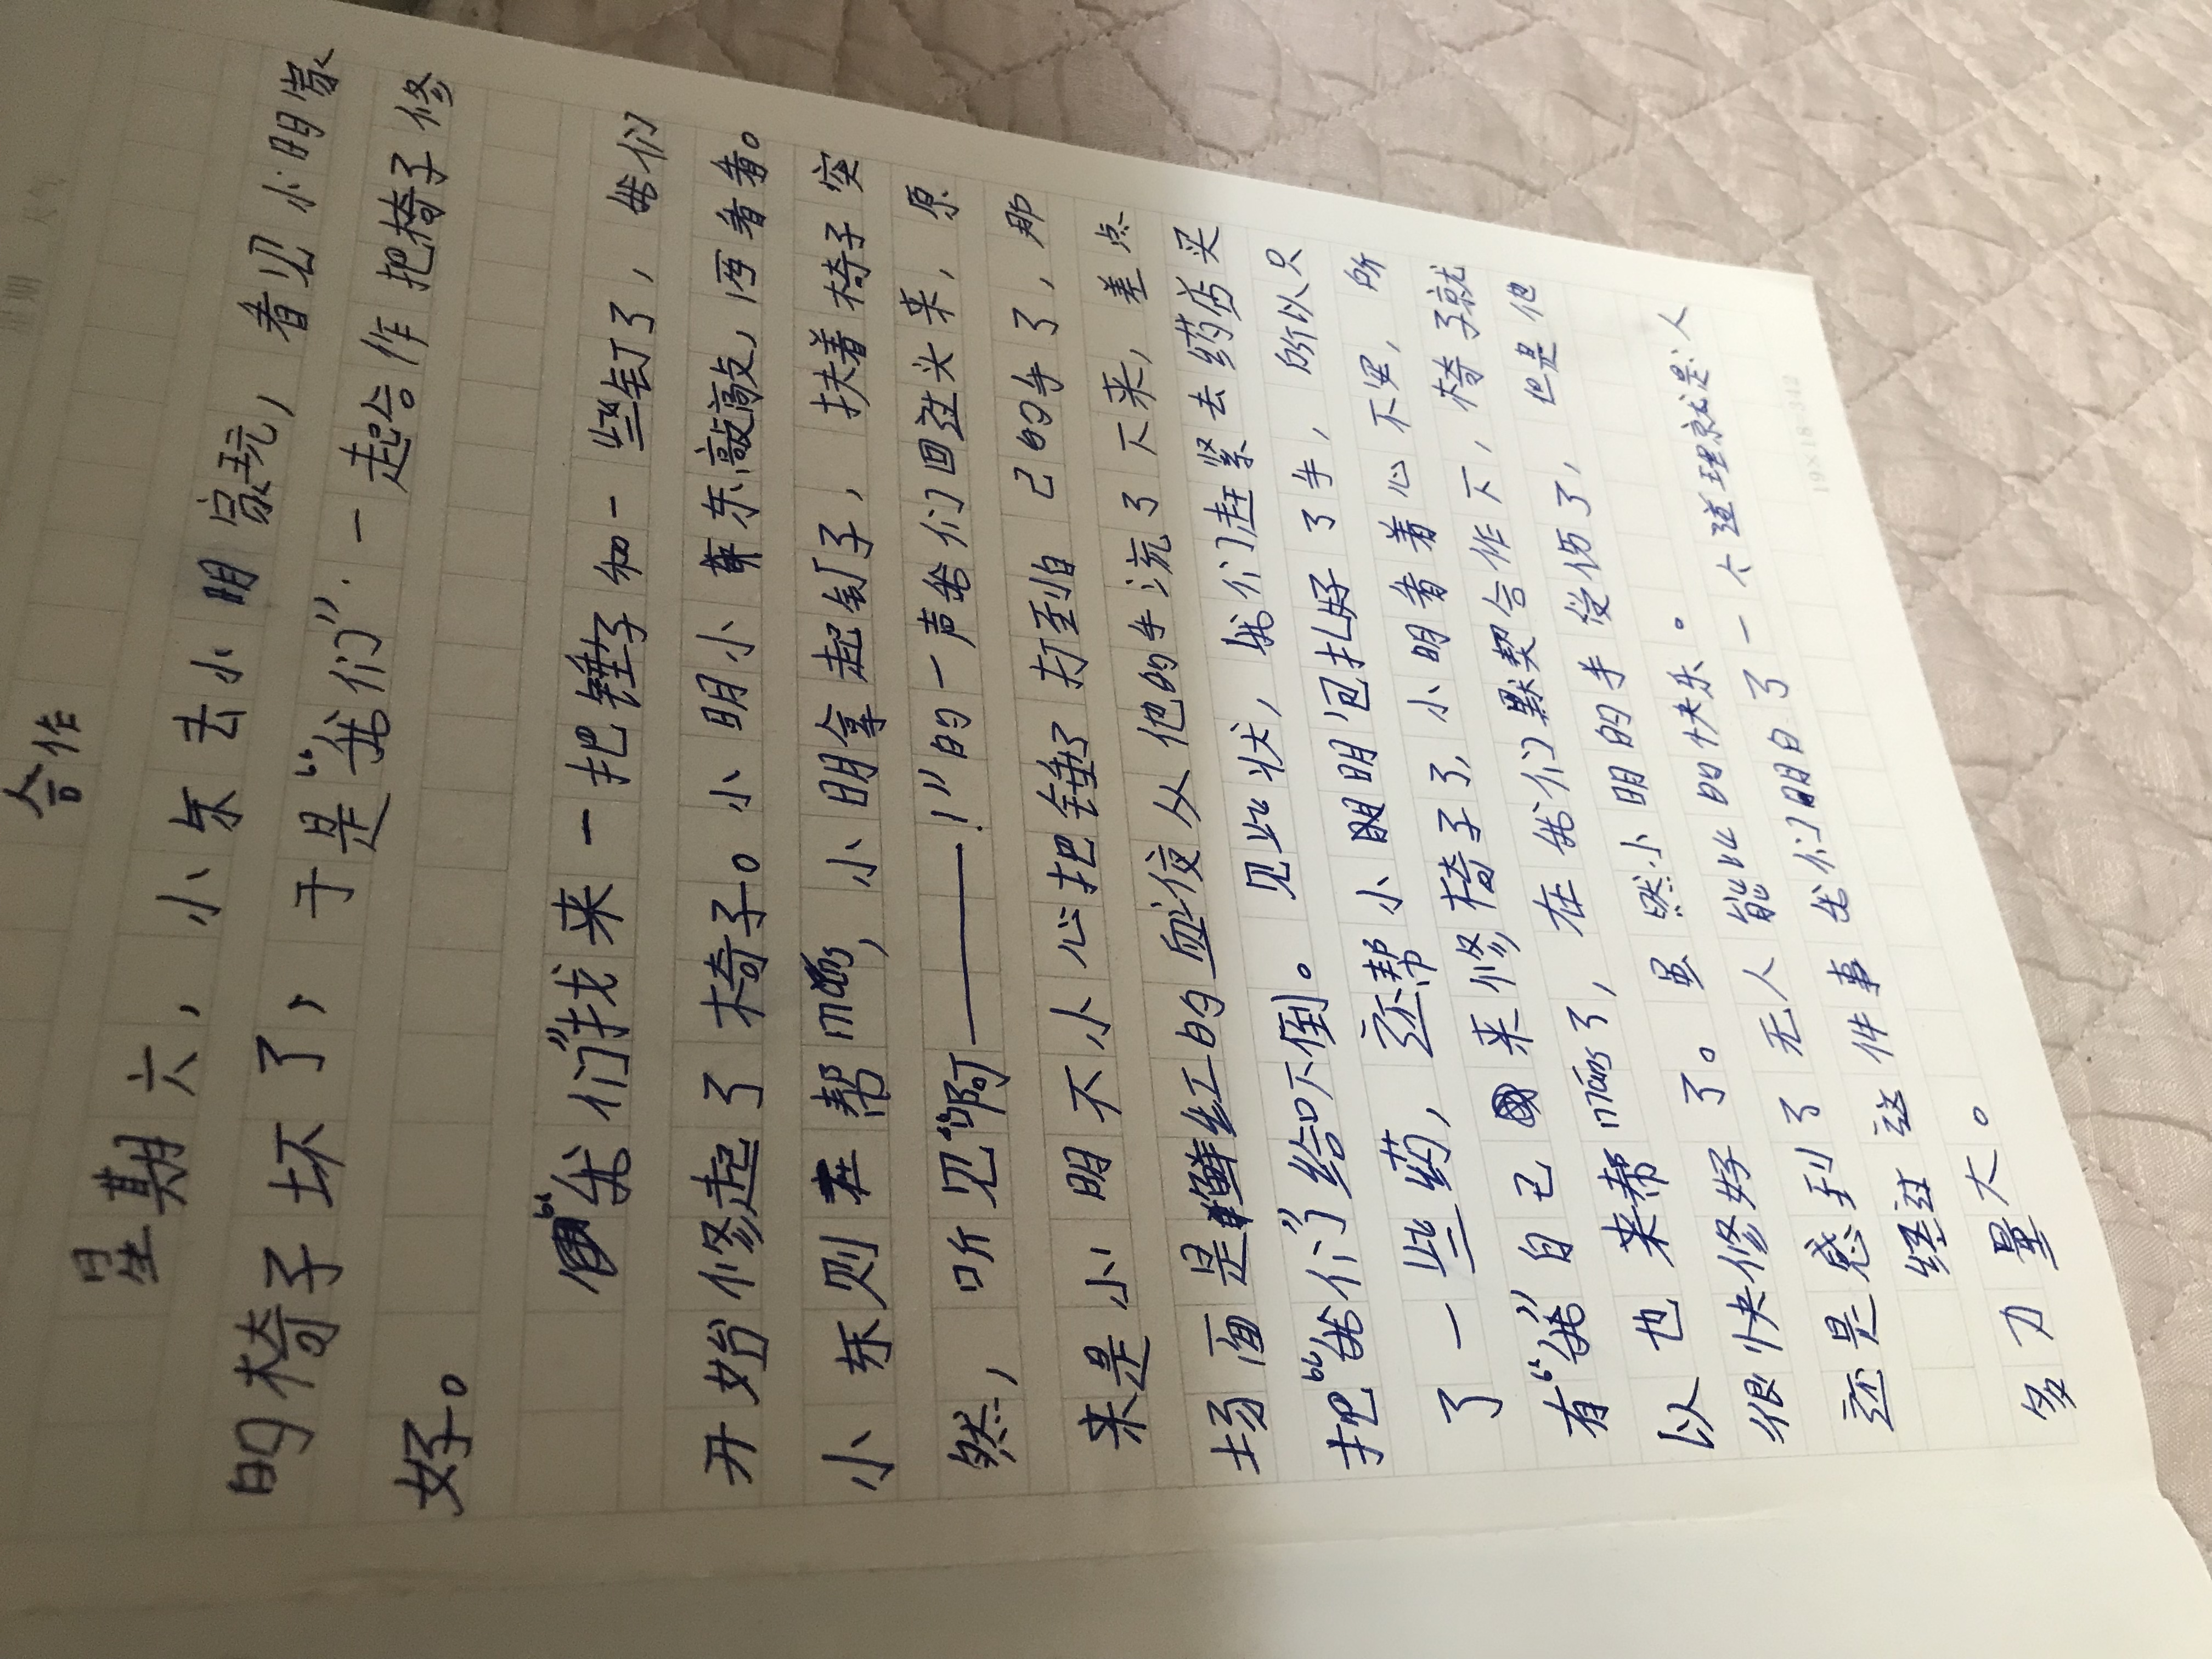 合作
星期六，小东去小明家玩，看见小明家
的椅子坏了，于是“我们”一起合作把椅子修
好。
“我们”找来一把锤子和一些钉了，我们
开始修起了椅子。小明小东敲敲，再看看。
小东则在帮máng，小明拿起钉子，扶着椅子突
然，听见“啊——！”的一声我们回过头来，原
来是小明不小心把锤了打到自己的手了，那
场面是鲜红的血液从他的手流了下来，差点
把“我们”给吓倒。见此状，我们赶紧去药店买
了一些药，还帮小明包扎好了手，所以只
有“我”自己来修椅子了，小明看着心不安，所
以也来帮máng了，在我们默契合作下，椅子就
很快修好了。虽然小明的手受伤了，但是他
还是感到了无人能比的快乐。
经过这件事我们明白了一个道理就是：人
多力量大。
19×18=342